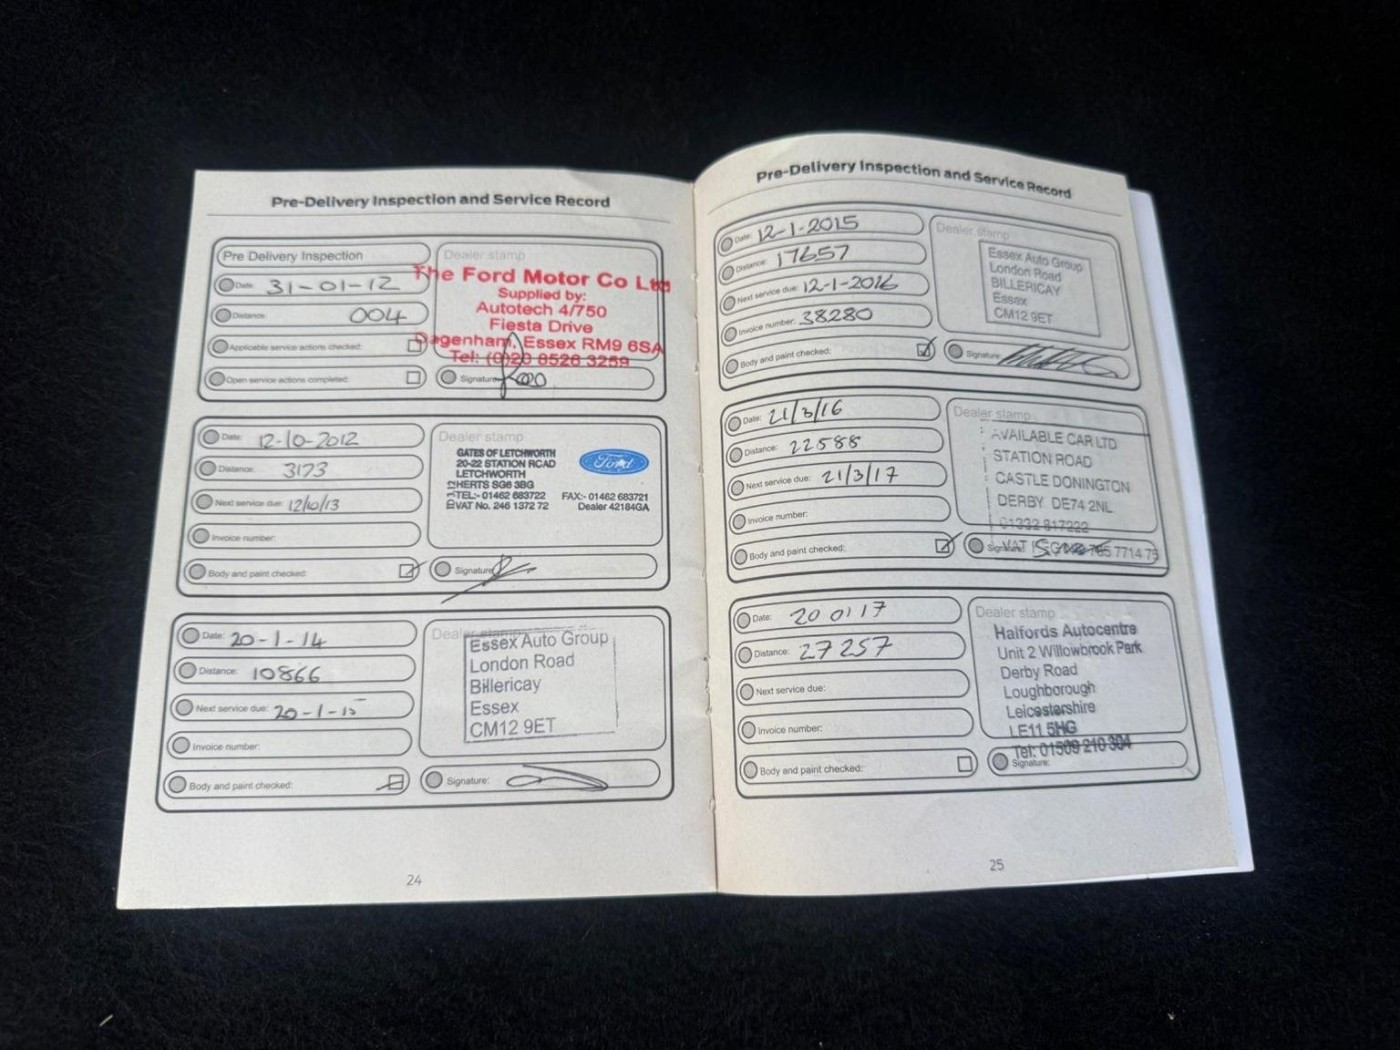 Pre-Delivery Inspection and Service Record
Pre Delivery Inspection
Date: 31-01-12
Distance: 004
Applicable service actions checked:
Open service actions completed:
Dealer stamp
The Ford Motor Co Ltd
Supplied by:
Autotech 4/750
Fiesta Drive
Dagenham, Essex RM9 6SA
Tel: (0)20 8526 3259
Signature
Date: 12-10-2012
Distance: 3173
Next service due: 12/10/13
Invoice number:
Body and paint checked:
Dealer stamp
GATES OF LETCHWORTH
20-22 STATION ROAD
LETCHWORTH
HERTS SG6 3BG
TEL:- 01462 683722 FAX:- 01462 683721
VAT No. 246 1372 72 Dealer 42184GA
Ford
Signature
Date: 20-1-14
Distance: 10866
Next service due: 20-1-15
Invoice number:
Body and paint checked:
Dealer stamp
Essex Auto Group
London Road
Billericay
Essex
CM12 9ET
Signature:
24
Pre-Delivery Inspection and Service Record
Date: 12-1-2015
Distance: 17657
Next service due: 12-1-2016
Invoice number: 38280
Body and paint checked:
Dealer stamp
Essex Auto Group
London Road
BILLERICAY
Essex
CM12 9ET
Signature:
Date: 21/3/16
Distance: 22588
Next service due: 21/3/17
Invoice number:
Body and paint checked:
Dealer stamp
AVAILABLE CAR LTD
STATION ROAD
CASTLE DONINGTON
DERBY DE74 2NL
01332 817222
VAT 7714 75
Date: 20 01 17
Distance: 27257
Next service due:
Invoice number:
Body and paint checked:
Dealer stamp
Halfords Autocentre
Unit 2 Willowbrook Park
Derby Road
Loughborough
Leicestershire
LE11 5HG
Tel: 01509 210 304
Signature:
25